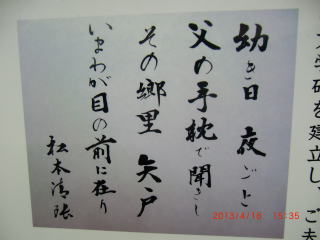 幼き日 夜ごと
父の手枕で聞きし
その郷里 矢戸
いまわが目の前に在り
松本清張
文学碑を建立し、ご夫
2013/4/16 15:35